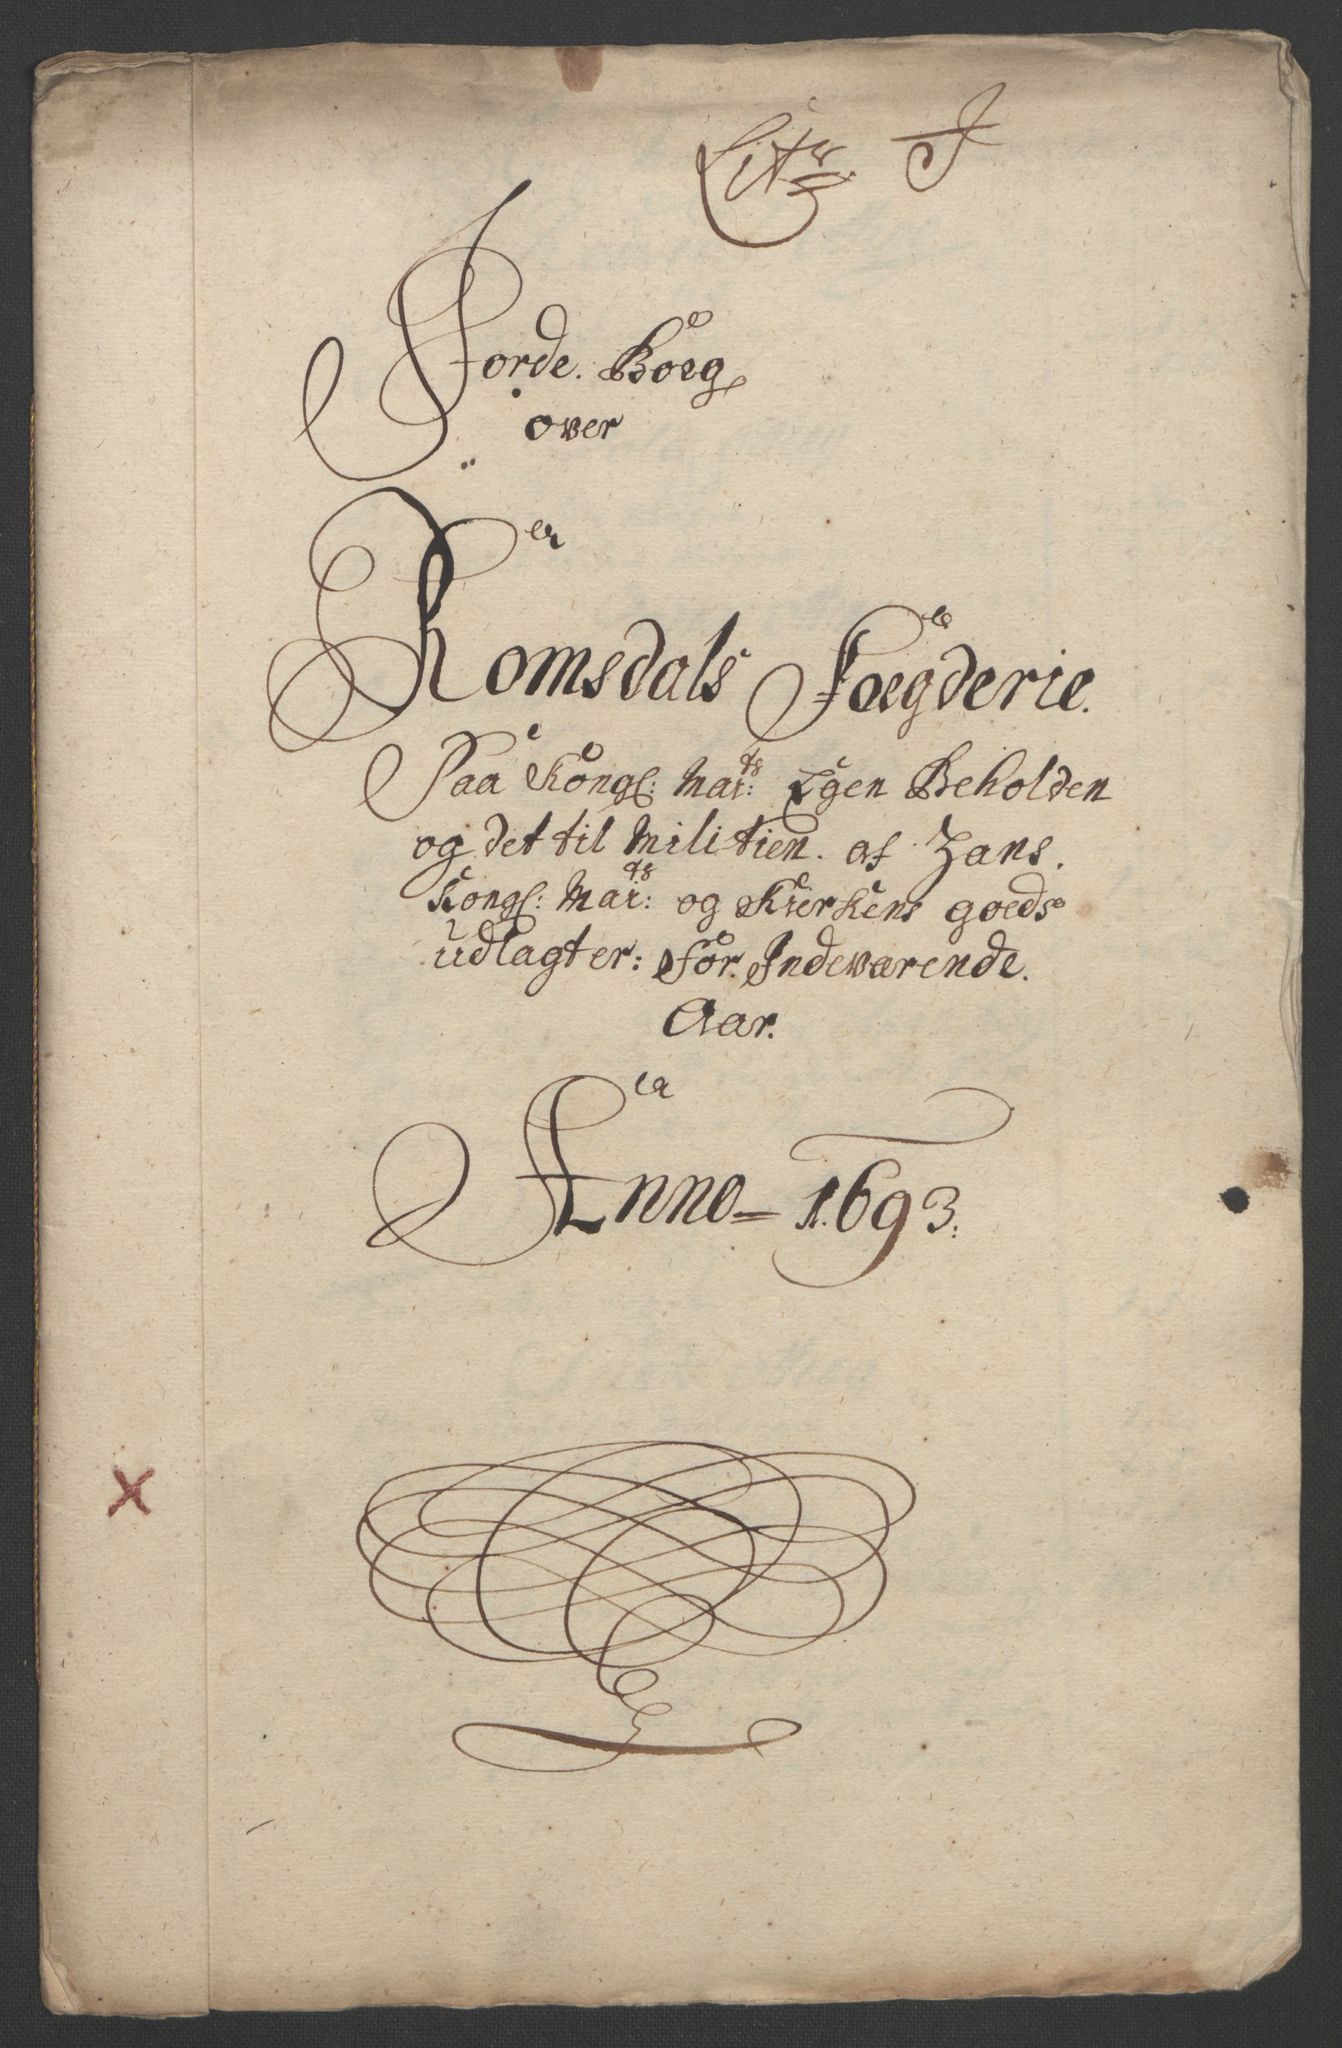 Litr. J
Jorde. Boeg
over
Romsdals Foegderie.
Paa Kongl: Mai:ts Egen Beholden
og det til Militien. af Hans.
Kongl: Mai:ts og Kierkens goeds
udlagter: for Indeværende.
Aar.
Anno 1693.
X